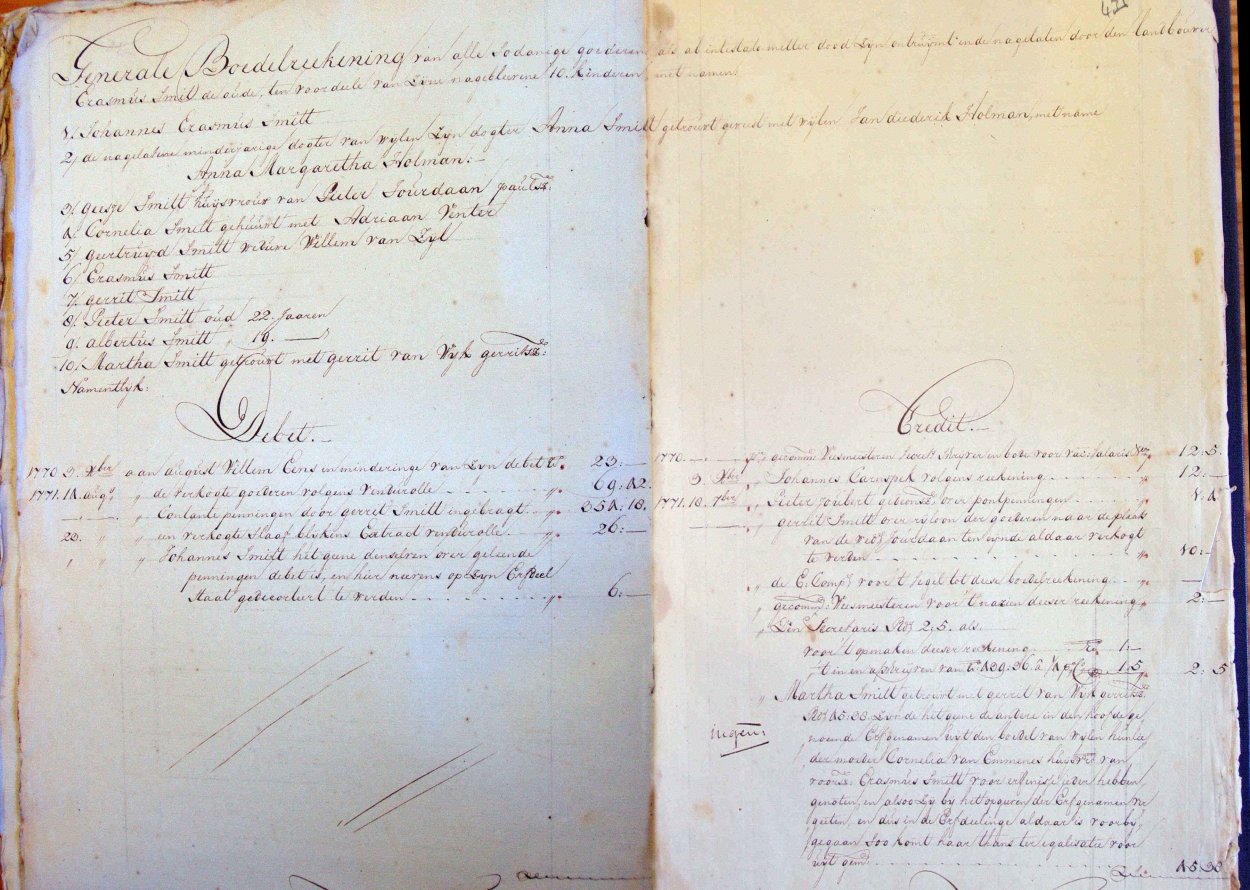 Generale Boedelreekening van alle sodanige goederen als ab intestato metter dood zyn ontruymt en de nagelaten door den landbouwer
Erasmus Smit de oude, ten voordeele van zyne nagebleevene 10. kinderen met namen:
1. Johannes Erasmus Smitt
2/ de nagelatene minderjarige dogter van wylen zyn dogter Anna Smitt getrouwt geweest met wylen Jan diederik Holman, met name
Anna Margaretha Holman:-
3/ geesje Smitt huysvrouw van Pieter Jourdaan paulsz:
4. Cornelia Smitt gehuuwt met Adriaan Venter
5/ geertruyd Smitt weduwe Willem van Zyl
6/ Erasmus Smitt
7/ gerrit Smitt
8/ Pieter Smitt oud 22. Jaaren
9. albertus Smitt " 19. —
10/ Martha Smitt getrouwt met gerrit van Wyk gerritsz:
Namentlyk:
Debet.-
1770 3. Xber aan august Willem Eens in minderinge van zyn debet Rx. 23:—
1771. 14 augs. " de verkogte goederen volgens vendurolle " 69. 42.
—.— " Contante penningen door gerrit Smitt ingebragt " 354: 18.
23. " " een verkogte slaaf blykens Extract vendurolle. " 26:—
" " " Johannes Smitt het geene denselven over geleende
penningen debet is, en hier nevens op zyn Erfdeel
staat gedecorteert te werden " 6:—
431
Credit.-
1770. — gecomm: Weesmeesteren Secrets. Schryver en bode voor vac: salaris 12: 5.
3. Xber " Johannes Carnspek volgens reekening 12:—
1771. 18. 7ber " Pieter Joubert gideonsz: over pontpenningen " 1. 4
" gerrit Smitt over ryloon der goederen naar de plaats
van de wed: Jourdaan ten eynde aldaar verkogt
te werden " 10:—
" de E. Comp: voor 't segel tot deese boedelreekening " —
" gecomm: Weesmeesteren voor 't nazien deeser reekening " 2:—
" Den Secretaris Rx 2: 5. als
voor 't opmaken deeser reekening Rx. 1:—
" 't in en afschryven van Rx: 439: 36. â 1/4 pCto 1:5 " 2: 5
" Martha Smitt getrouwt met gerret van Wyk gerritsz:
Rx 45: 38. zynde het geene de andere in den hoofde ge
noemde Erfgenamen uyt den boedel van wylen hunlie
der moeder Cornelia van Emmenes huysvr: van
voorsz: Erasmus Smitt voor erfenisse ieder hebben
genoten, en alsoo zy by het opgeven der Erfgenamen ver
geeten, en dus in de Erfdeelinge aldaar is voorby
gegaan soo komt haar thans ter egalisatie voor
uyt gem: 45 38